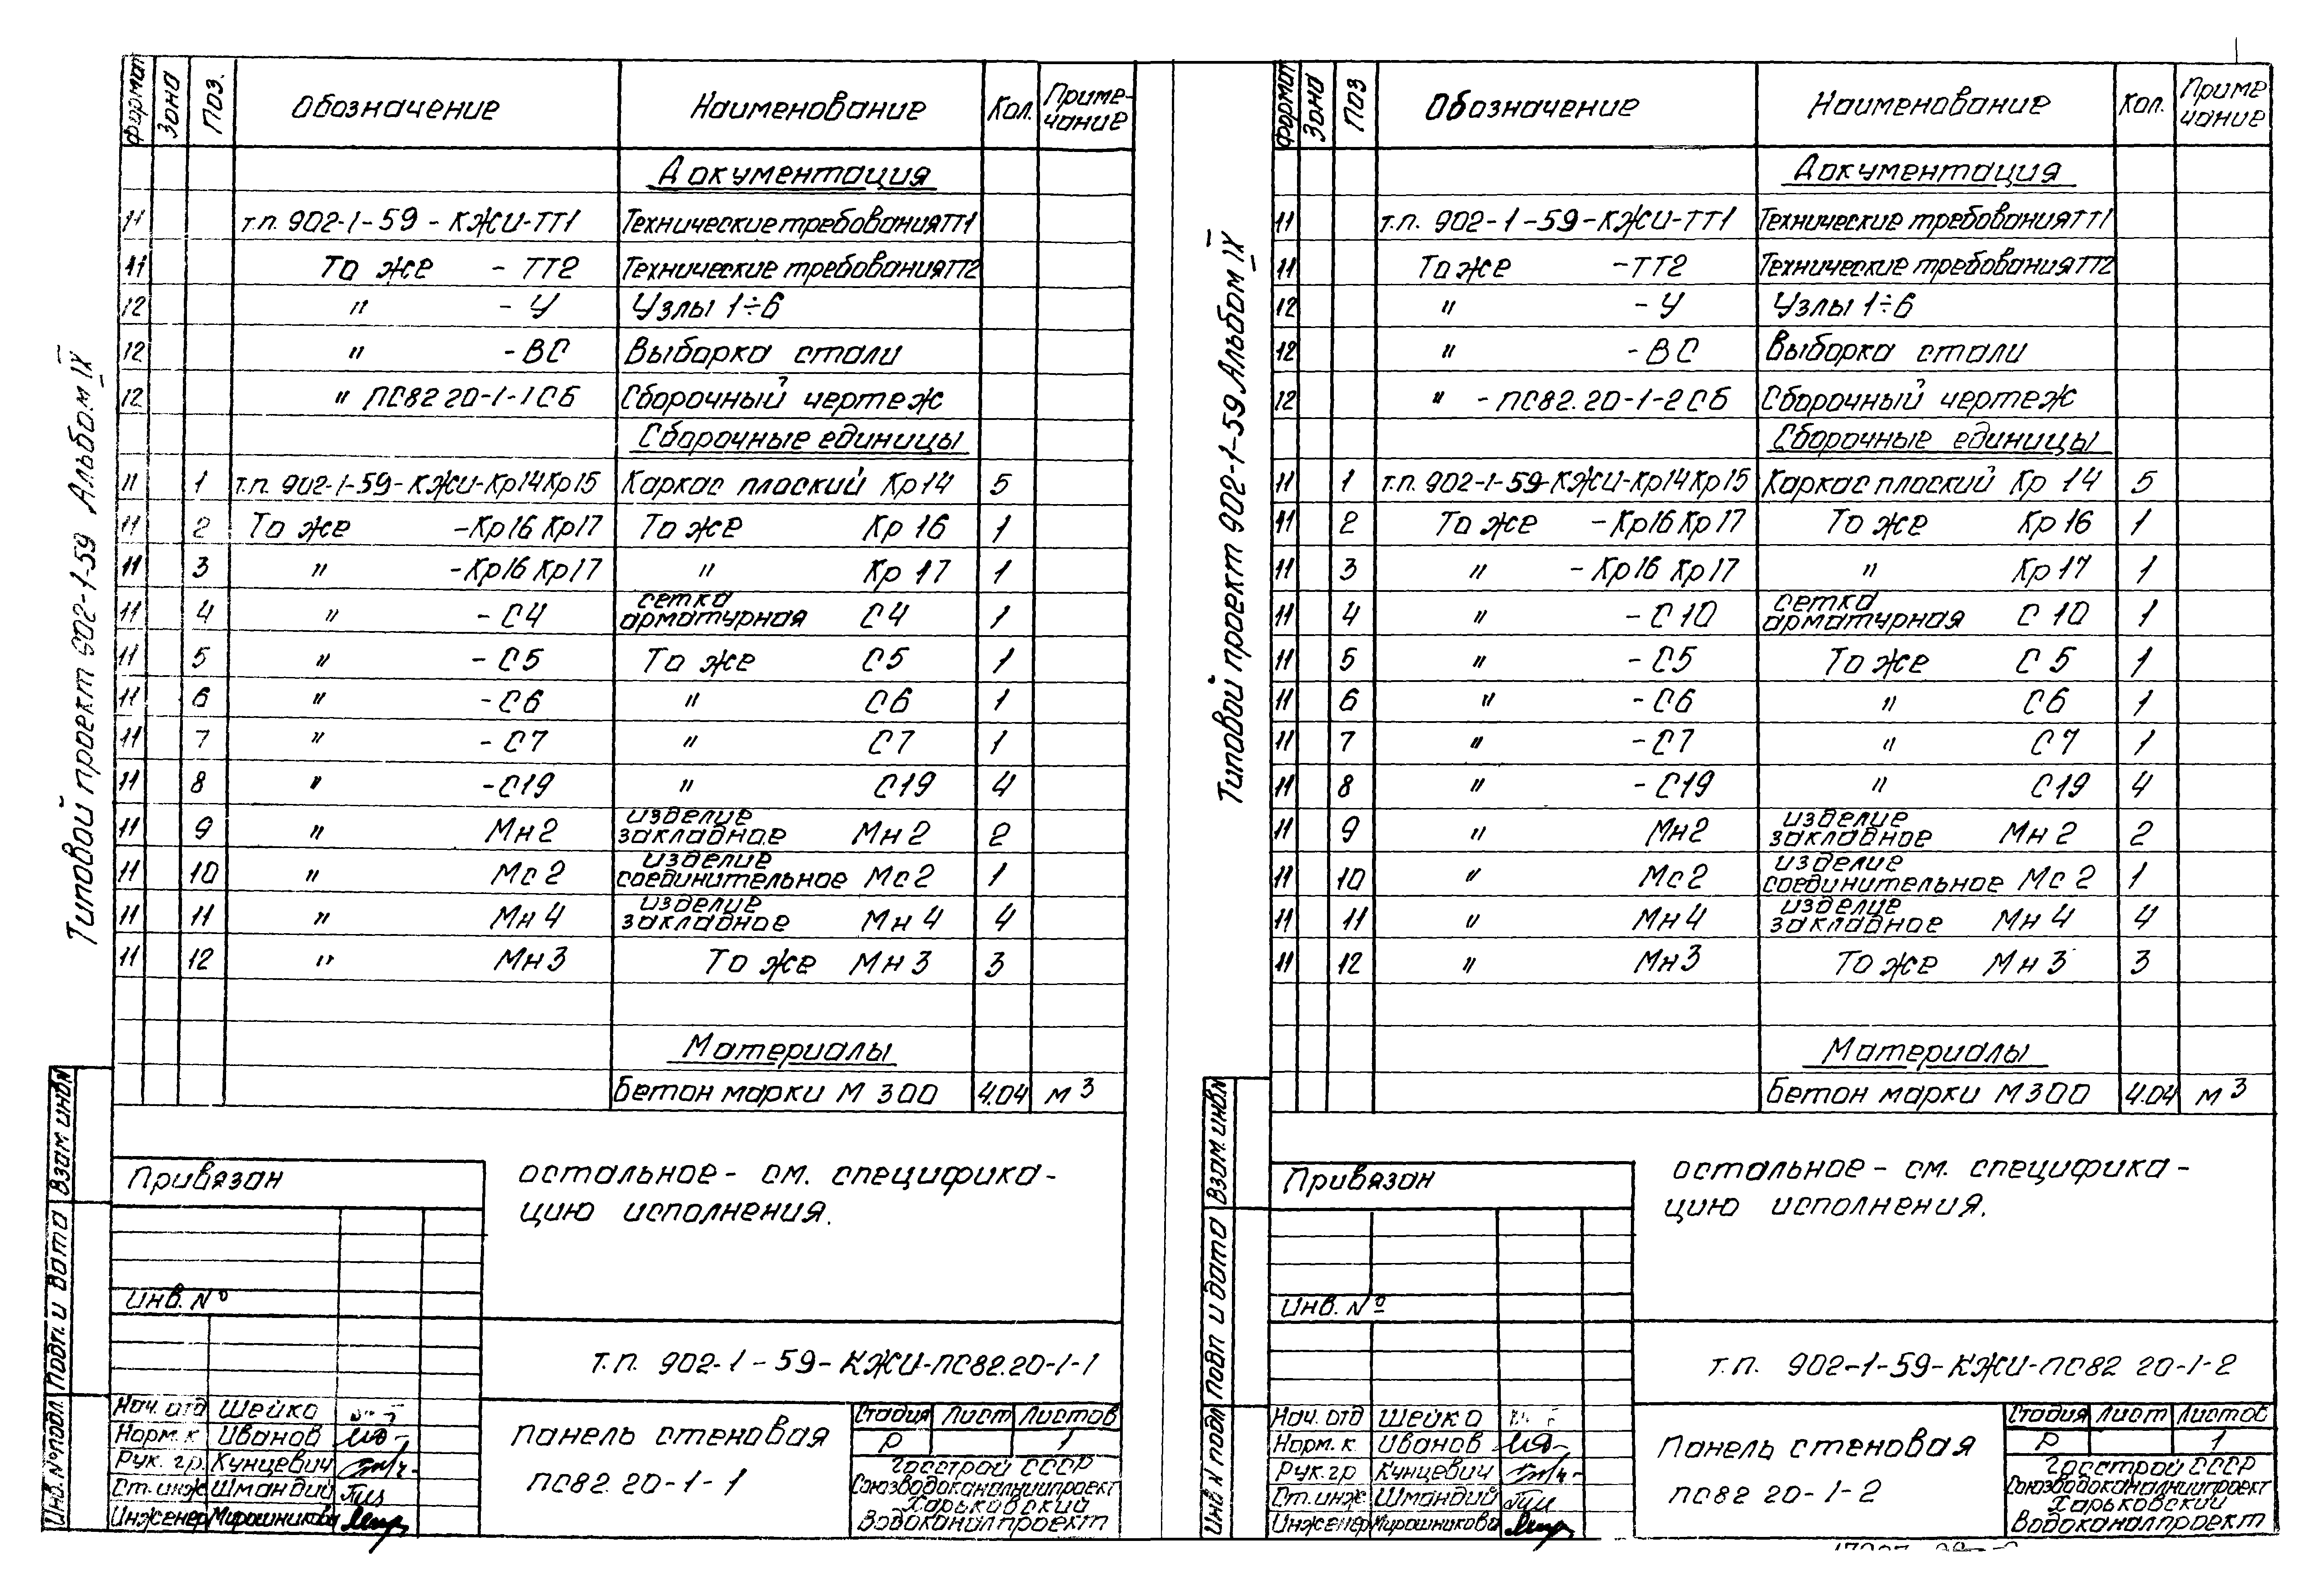 Типовой проект 902-1-59 Альбом IX
Формат Зона Поз. Обозначение Наименование Кол. Приме-чание
Документация
11 т.п. 902-1-59-КЖИ-ТТ1 Технические требования ТТ1
11 То же -ТТ2 Технические требования ТТ2
12 " -У Узлы 1÷6
12 " -ВС Выборка стали
12 " ПС82 20-1-1СБ Сборочный чертеж
Сборочные единицы
11 1 т.п. 902-1-59-КЖИ-Кр14Кр15 Каркас плоский Кр14 5
11 2 То же -Кр16 Кр17 То же Кр 16 1
11 3 " -Кр16 Кр17 " Кр 17 1
11 4 " -С4 сетка арматурная С4 1
11 5 " -С5 То же С5 1
11 6 " -С6 " С6 1
11 7 " -С7 " С7 1
11 8 " -С19 " С19 4
11 9 " Мн2 изделие закладное Мн2 2
11 10 " Мс2 изделие соединительное Мс2 1
11 11 " Мн4 изделие закладное Мн4 4
11 12 " Мн3 То же Мн3 3
Материалы
Бетон марки М 300 4.04 м3
остальное - см. специфика-
цию исполнения.
Привязан
Инв. №
Взам инв№
Подп. и дата
Инв. № подл.
т.п. 902-1-59-КЖИ-ПС82.20-1-1
Нач. отд Шейко
Норм. к Иванов
Рук. гр. Кунцевич
Ст. инж Шмандий
Инженер Мирошникова
Панель стеновая
ПС82.20-1-1
Стадия Лист Листов
Р 1
Госстрой СССР
Союзводоканалниипроект
Харьковский
Водоканалпроект
Типовой проект 902-1-59 Альбом IX
Формат Зона Поз Обозначение Наименование Кол. Приме чание
Документация
11 т.п. 902-1-59-КЖИ-ТТ1 Технические требования ТТ1
11 То же -ТТ2 Технические требования ТТ2
12 " -У Узлы 1÷6
12 " -ВС Выборка стали
12 " -ПС82.20-1-2СБ Сборочный чертеж
Сборочные единицы
11 1 т.п. 902-1-59-КЖИ-Кр14Кр15 Каркас плоский Кр 14 5
11 2 То же -Кр16 Кр17 То же Кр 16 1
11 3 " -Кр16 Кр17 " Кр 17 1
11 4 " -С10 сетка арматурная С 10 1
11 5 " -С5 То же С 5 1
11 6 " -С6 " С6 1
11 7 " -С7 " С7 1
11 8 " -С19 " С19 4
11 9 " Мн2 изделие закладное Мн2 2
11 10 " Мс2 изделие соединительное Мс2 1
11 11 " Мн4 изделие закладное Мн4 4
11 12 " Мн3 То же Мн3 3
Материалы
Бетон марки М300 4.04 м3
остальное - см. специфика-
цию исполнения.
Привязан
Инв. №
Взам. инв№
Подп и дата
Инв N подл
т.п. 902-1-59-КЖИ-ПС82 20-1-2
Нач. отд Шейко
Норм. к. Иванов
Рук. гр Кунцевич
Ст. инж Шмандий
Инженер Мирошникова
Панель стеновая
ПС82 20-1-2
Стадия Лист Листов
Р 1
Госстрой СССР
Союзводоканалниипроект
Харьковский
Водоканалпроект